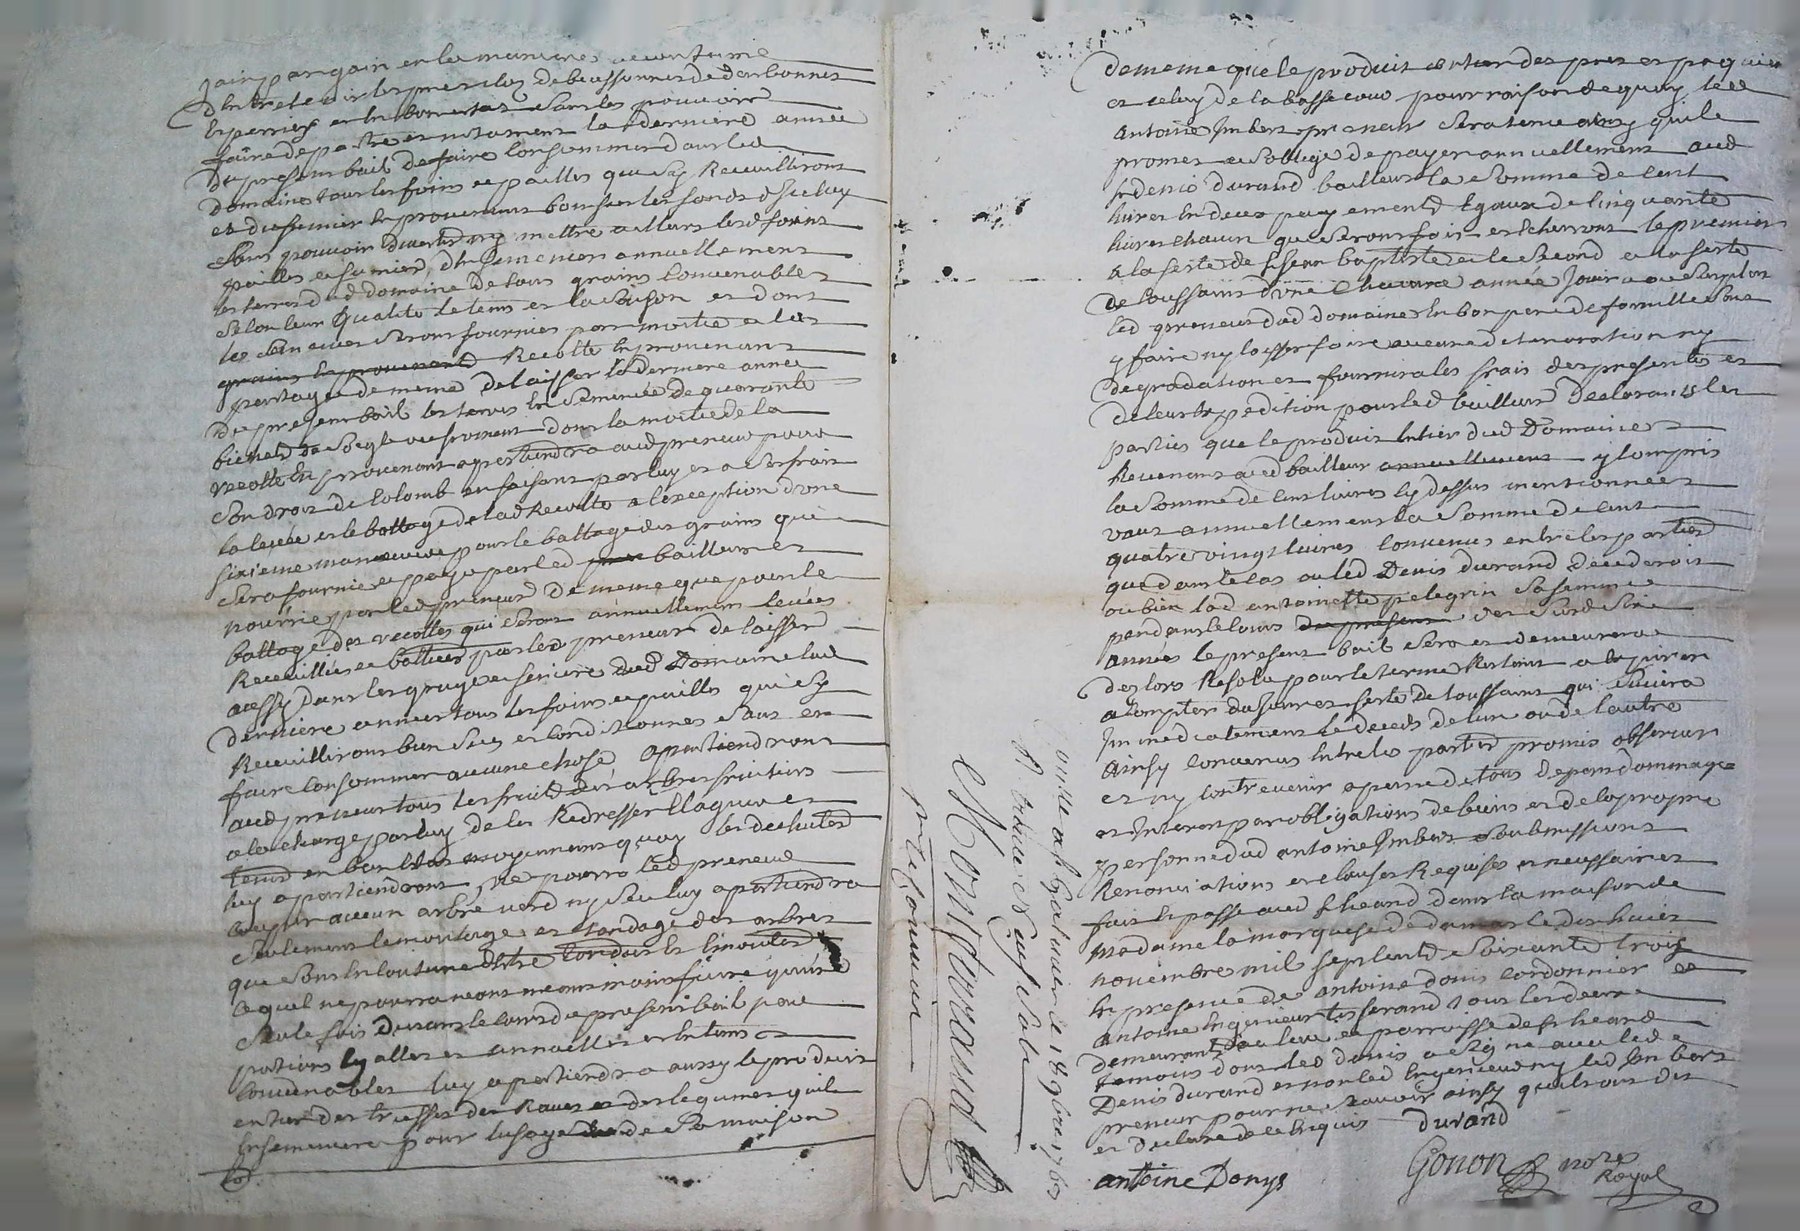 d'entretenir les pres clos de buissonnes de
faire de paitre et notament la derniere année
du present bail de faire consommer dans led
domaine tous les foins et pailles que s'y Recuilliront
et du fumier en provenant bonifier les fonds d'Iceluy
sans pouvoir divertir ny mettre ailleurs lesd foins
pailles et fumier, d'Ensemencer annuellement
les terres dud domaine de tous grains Convenables
selon leur qualité le tems et la saison et dont
les semences seront fournies par moitié et les
grains en provenants Recolte en provenant
partagée de meme de laisser la derniere année
du present bail les terres En semencée de quarante
bichets de seigle ou froment dont la moitié de la
recolte En provenant apartiendra aud preneur pour
son droit de Colomb en faisant par luy et a ses frais
la levée et le battage de lad Recolte a l'exception d'une
sixieme manoeuvre pour le battage des grains qui
sera fournie et payé par led bailleur et
nourrie par led preneur de meme que pour le
battage des recoltes qui seront annuellement levées
Recuillies et battues par led preneur de laisser
aussy dans les granges et feniere dud Domaine lad
derniere année tous les foins et pailles qui s'y
Recuilliront bien secs et conditionnes sans en
faire consommer aucune chose apartiendront
aud preneur tous les fruits des arbres fruitiers
a la charge par luy de les Redresser Elaguer et
tenir en bon etat moyennant quoy les dechutes
luy apartiendront, ne pourra led preneur
couper aucun arbre verd ny sec luy apartiendra
seulement le et tondage des arbres
que sont en coutume d'Etre tondus et Emondes
lequel ne pourra neant moins faire qu'une
seule fois durant le cours du present bail par
portions Egalles et annuelles et en tems
Convenables luy apartiendra aussy le produit
entier des des Raves et des legumes qu'il
Ensemencera pour l'usage de sa maison
de meme que le produit entier des pres et paquier
et celuy de la basse cour pour raison de quoy led
antoine Imbert preneur sera tenu ainsy qu'il
promet et s'oblige de payer annuellement aud
sr denis durand bailleur la somme de cent
livres En deux payements Egaux de cinquante
livres chacun que seront fait et Echerront le premier
a la feste de st Jean baptiste et le second a la feste
de toussaint d'une chacune année Jouira au surplus
led preneur dud domaine En bon pere de famille sans
y faire ny laisser faire aucune deterioration ny
degradation et fournira les frais des presentes et
de leur Expedition pour led bailleur declarants les
parties que le produit Entier dud Domaine
Revenant aud bailleur annuellement y compris
la somme de cent livres cy dessus mentionnée
vaut annuellement la somme de cent
quatre vingt livres convenus entre les parties
que dans le cas ou led Denis durand decederoit
ou bien lad antoinette pelegrin sa femme
pendant le cours du present des susd six
années le present bail sera et demeurera
des lors Resolu pour le terme Restant a Expirer
a compter du jour et feste de toussaint qui suivra
Immediatement le deceds de l'un ou de l'autre
Ainsy convenus Entre les parties promis observer
et ny contrevenir a peine de tous depens dommages
et Interest par obligations de biens et de la propre
personne dud antoine Imbert soubmissions
Renonciations et clauses Requises et necessaires
fait et passé aud st heand dans la maison de
Madame la marquise de le dix huit
novembre mil sept cents soixante trois
En presence de antoine donis cordonnier et
Antoine Ingenieur tisserand tous les deux
demeurants au lieu et parroisse de st heand
temoins dont led donis a signé avec led
Denis durand et non led Ingenieur ny led Imbert
preneur pour ne scavoir ainsy qu'ils ont dit
et declaré de ce Enquis
durand
antoine Donys
Gonon nore
Royal
a st heand le 18 9bre 1763
Mon durand